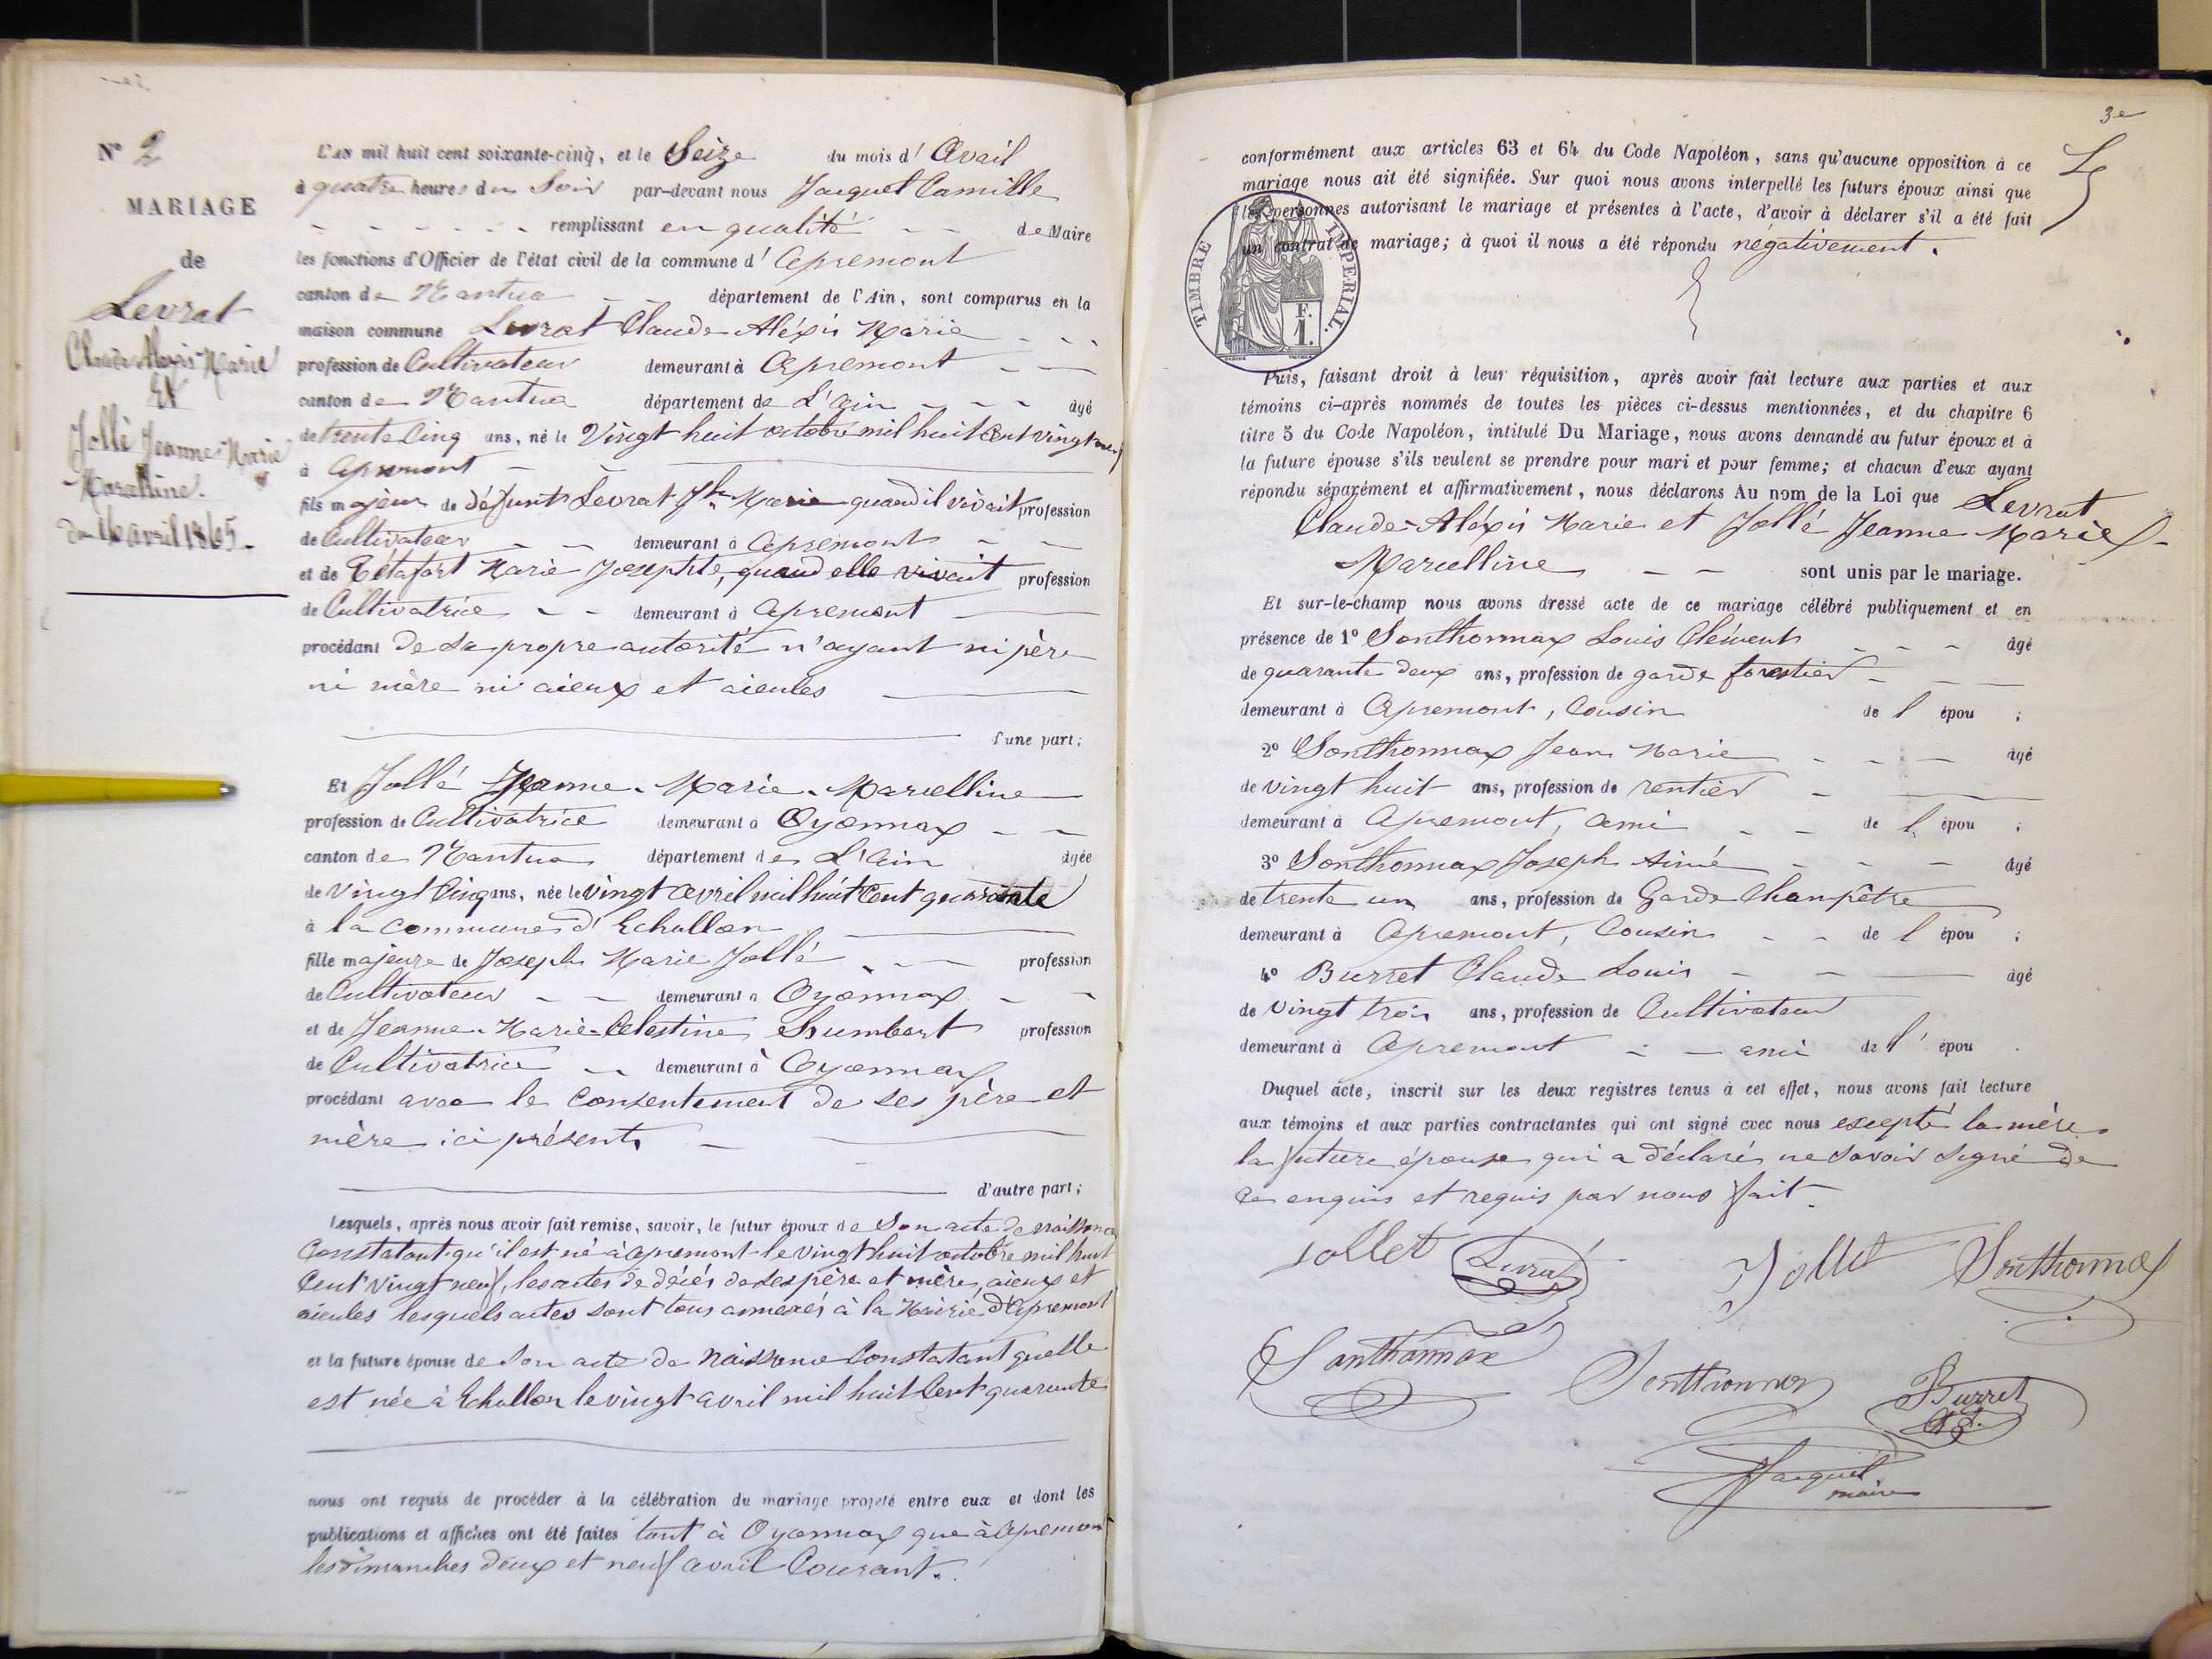 N° 2
MARIAGE
de
Levrat
Claude Alexis Marie
Et
Jollé Jeanne-Marie
Marcelline.
du 16 avril 1865.
L'AN mil huit cent soixante-cinq, et le Seize du mois d' Avril
à quatre heures du Soir par-devant nous Jacquet Camille
remplissant en qualité de Maire
les fonctions d'Officier de l'état civil de la commune d' Apremont
canton de Nantua département de l'Ain, sont comparus en la
maison commune Levrat Claude Aléxis Marie
profession de Cultivateur demeurant à Apremont
canton de Nantua département de L'ain âgé
de trente Cinq ans, né le Vingt huit octobre mil huit Cent vingt neuf
à Apremont
fils majeur de défunt Levrat Jh Marie quand il vivait profession
de Cultivateur demeurant à Apremont
et de Marie Josephte, quand elle vivait profession
de Cultivatrice demeurant à Apremont
procédant de sa propre autorité n'ayant ni père
ni mère ni aieux et aieules
d'une part;
Et Jollé Jeanne-Marie-Marcelline
profession de Cultivatrice demeurant à Oyonnax
canton de Nantua département de L'ain âgée
de Vingt Cinq ans, née le Vingt avril mil huit Cent quarante
à la commune d' Echallon
fille majeure de Joseph Marie Jollé profession
de Cultivateur demeurant à Oyonnax
et de Jeanne-Marie-Célestine Humbert profession
de Cultivatrice demeurant à Oyonnax
procédant avec le Consentement de ses père et
mère ici présents
d'autre part;
Lesquels, après nous avoir fait remise, savoir, le futur époux de Son acte de naissance
Constatant qu'il est né à apremont le Vingt huit octobre mil huit
Cent Vingt neuf, les actes de décés de ses père et mère, aieux et
aieules lesquels actes sont tous annexés à la Mairie d'Apremont
et la future épouse de Son acte de Naissance Constatant quelle
est née à Echallon le vingt avril mil huit Cent quarante
nous ont requis de procéder à la célébration du mariage projeté entre eux et dont les
publications et affiches ont été faites tant à Oyonnax que à Apremont
les dimanches deux et neuf avril Courant.
3e
conformément aux articles 63 et 64 du Code Napoléon, sans qu'aucune opposition à ce
mariage nous ait été signifiée. Sur quoi nous avons interpellé les futurs époux ainsi que
les personnes autorisant le mariage et présentes à l'acte, d'avoir à déclarer s'il a été fait
un contrat de mariage; à quoi il nous a été répondu négativement.
TIMBRE IMPERIAL.
F.
1.
Puis, faisant droit à leur réquisition, après avoir fait lecture aux parties et aux
témoins ci-après nommés de toutes les pièces ci-dessus mentionnées, et du chapitre 6
titre 5 du Code Napoléon, intitulé Du Mariage, nous avons demandé au futur époux et à
la future épouse s'ils veulent se prendre pour mari et pour femme; et chacun d'eux ayant
répondu séparément et affirmativement, nous déclarons Au nom de la Loi que Levrat
Claude-Aléxis Marie et Jollé Jeanne Marie
Marcelline sont unis par le mariage.
Et sur-le-champ nous avons dressé acte de ce mariage célébré publiquement et en
présence de 1° Sonthonnax Louis Clément âgé
de quarante deux ans, profession de garde forestier
demeurant à Apremont, Cousin de l épou ;
2° Sonthonnax Jean Marie âgé
de vingt huit ans, profession de rentier
demeurant à Apremont, ami de l épou ;
3° Sonthonnax Joseph Aimé âgé
de trente un ans, profession de Garde Champêtre
demeurant à Apremont, Cousin de l épou ;
4° Burret Claude Louis âgé
de Vingt trois ans, profession de Cultivateur
demeurant à Apremont ami de l' épou .
Duquel acte, inscrit sur les deux registres tenus à cet effet, nous avons fait lecture
aux témoins et aux parties contractantes qui ont signé avec nous excepté la mère
la future épouse qui a déclaré ne savoir signé de
ce enquis et requis par nous fait.
Jollet Levrat Jollet Sonthonnax
Sonthonnax Sonthonnax Burret
Jacquet
maire